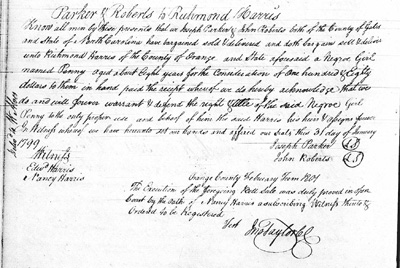 Parker & Roberts to Richmond Harris
Know all men by these presents that we Joseph Parker & John Roberts both of the County of
and State of North Carolina have bargained sold & delivered and doth bargain sell & deliver
unto Richmond Harris of the County of Orange and State aforesaid a Negroe Girl
named Penny aged about Eight years for the Consideration of One hundred & Eighty
dollars to them in hand paid the receipt whereof we do hereby acknowledge that we
do and will forever warrant & defend the right & title of the said Negroe Girl
Penny to the only proper use and behoof of him the said Harris his heirs & assigns forever
In Witness whereof we have hereunto set our hands and affixed our Seals this 31 day of January
1799
Joseph Parker LS
John Roberts LS
Witness
Harris
Nancy Harris
Orange County February Term 1801
The Execution of the foregoing Bill Sale was duly proved in Open
Court by the Oath of Nancy Harris a subscribing Witness thereto &
Ordered to be Registered
Test Taylor